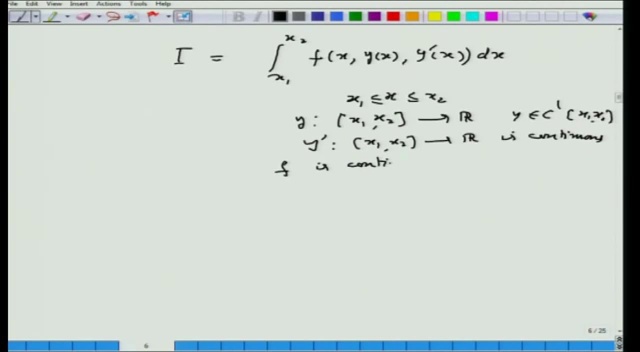 File Edit View Insert Actions Tools Help
I = ∫_{x₁}^{x₂} f(x, y(x), y'(x)) dx
x₁ ≤ x ≤ x₂
y : [x₁, x₂] → ℝ y ∈ C¹[x₁, x₂]
y' : [x₁, x₂] → ℝ is continuous
f is conti
6 / 25
6